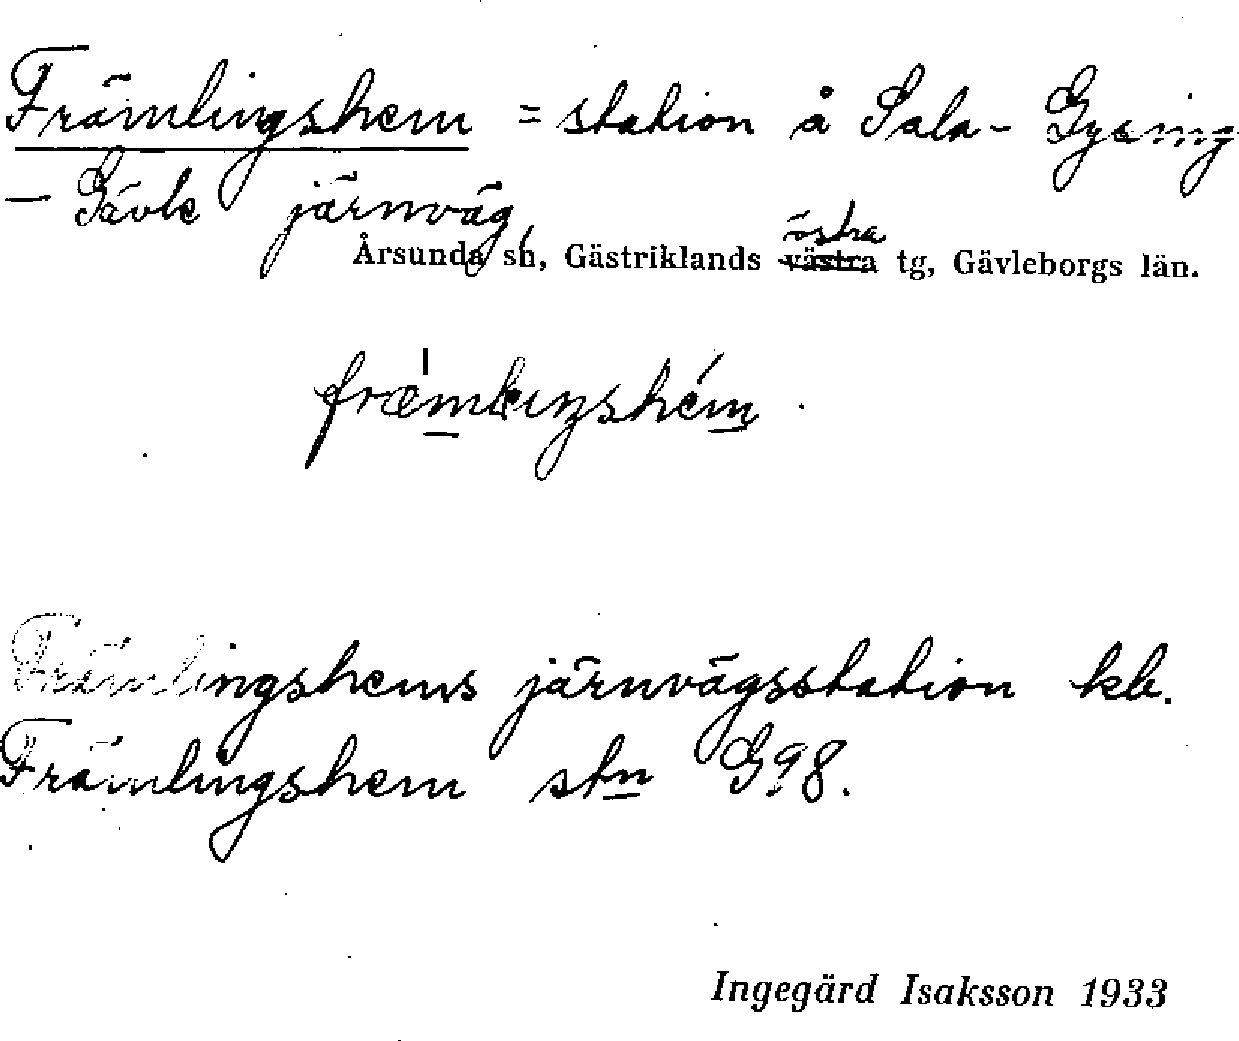 Främlingshem = station å Sala- Gysinge
– Gävle järnväg,
Årsunda sn, Gästriklands västra östra tg, Gävleborgs län.
Främlingshems järnvägsstation kb.
Främlingshem stn G98.
Ingegärd Isaksson 1933